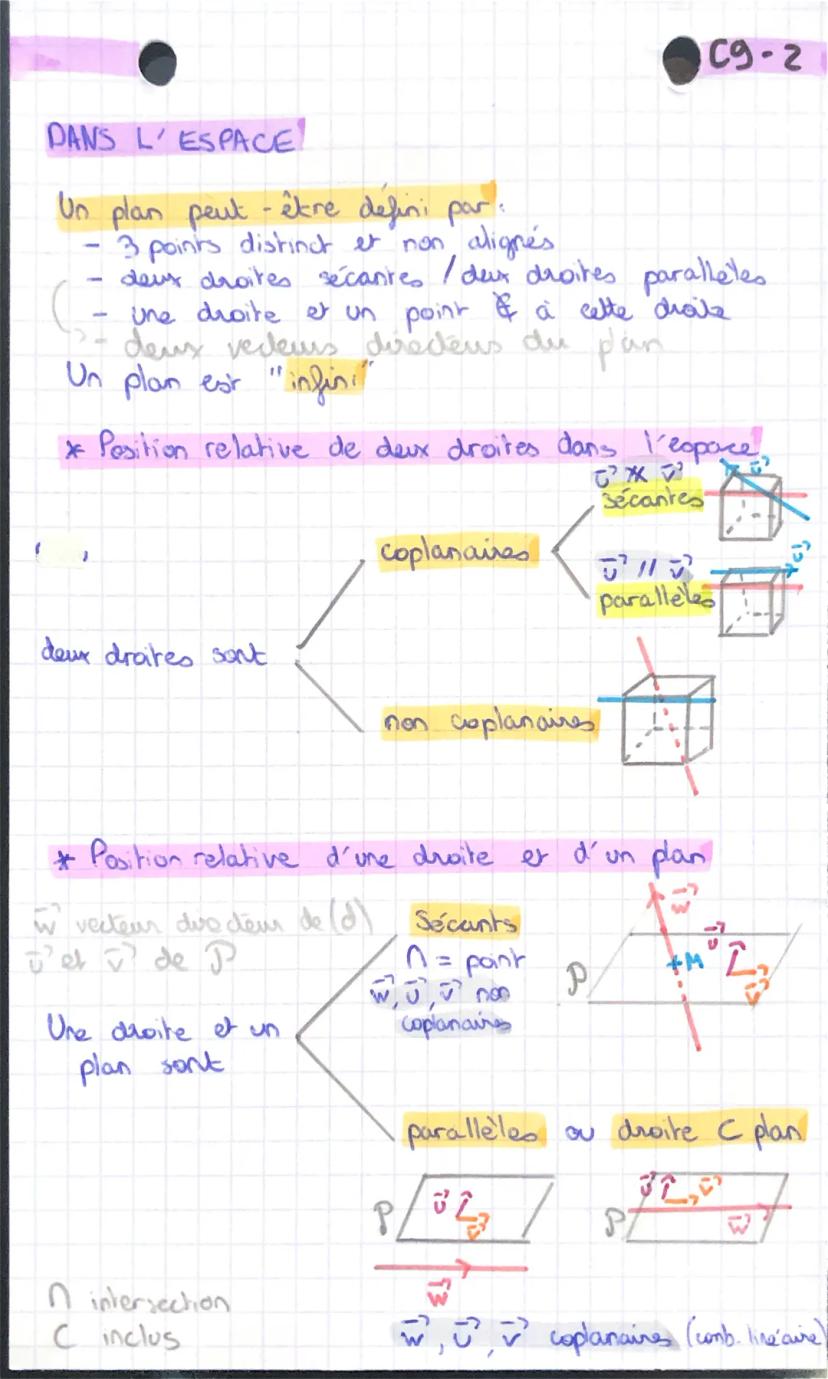 C9-2
DANS L'ESPACE
Un plan peut-être défini par :
- 3 points distinct et non alignés
- deux droites sécantes / deux droites parallèles
- une droite et un point ∉ à cette droite
- deux vecteurs directeurs du plan
Un plan est "infini"
* Position relative de deux droites dans l'espace
u⃗ ∦ v⃗
sécantes
v⃗
coplanaires
u⃗ // v⃗
parallèles
v⃗
deux droites sont
non coplanaires
* Position relative d'une droite et d'un plan
w⃗ vecteur directeur de (d)
u⃗ et v⃗ de P
Sécants
∩ = point
w⃗, u⃗, v⃗ non
coplanaires
w⃗
P
M
u⃗
v⃗
Une droite et un
plan sont
parallèles ou droite ⊂ plan
P
u⃗
v⃗
w⃗
P
u⃗
v⃗
w⃗
∩ intersection
⊂ inclus
w⃗, u⃗, v⃗ coplanaires (comb. linéaire)